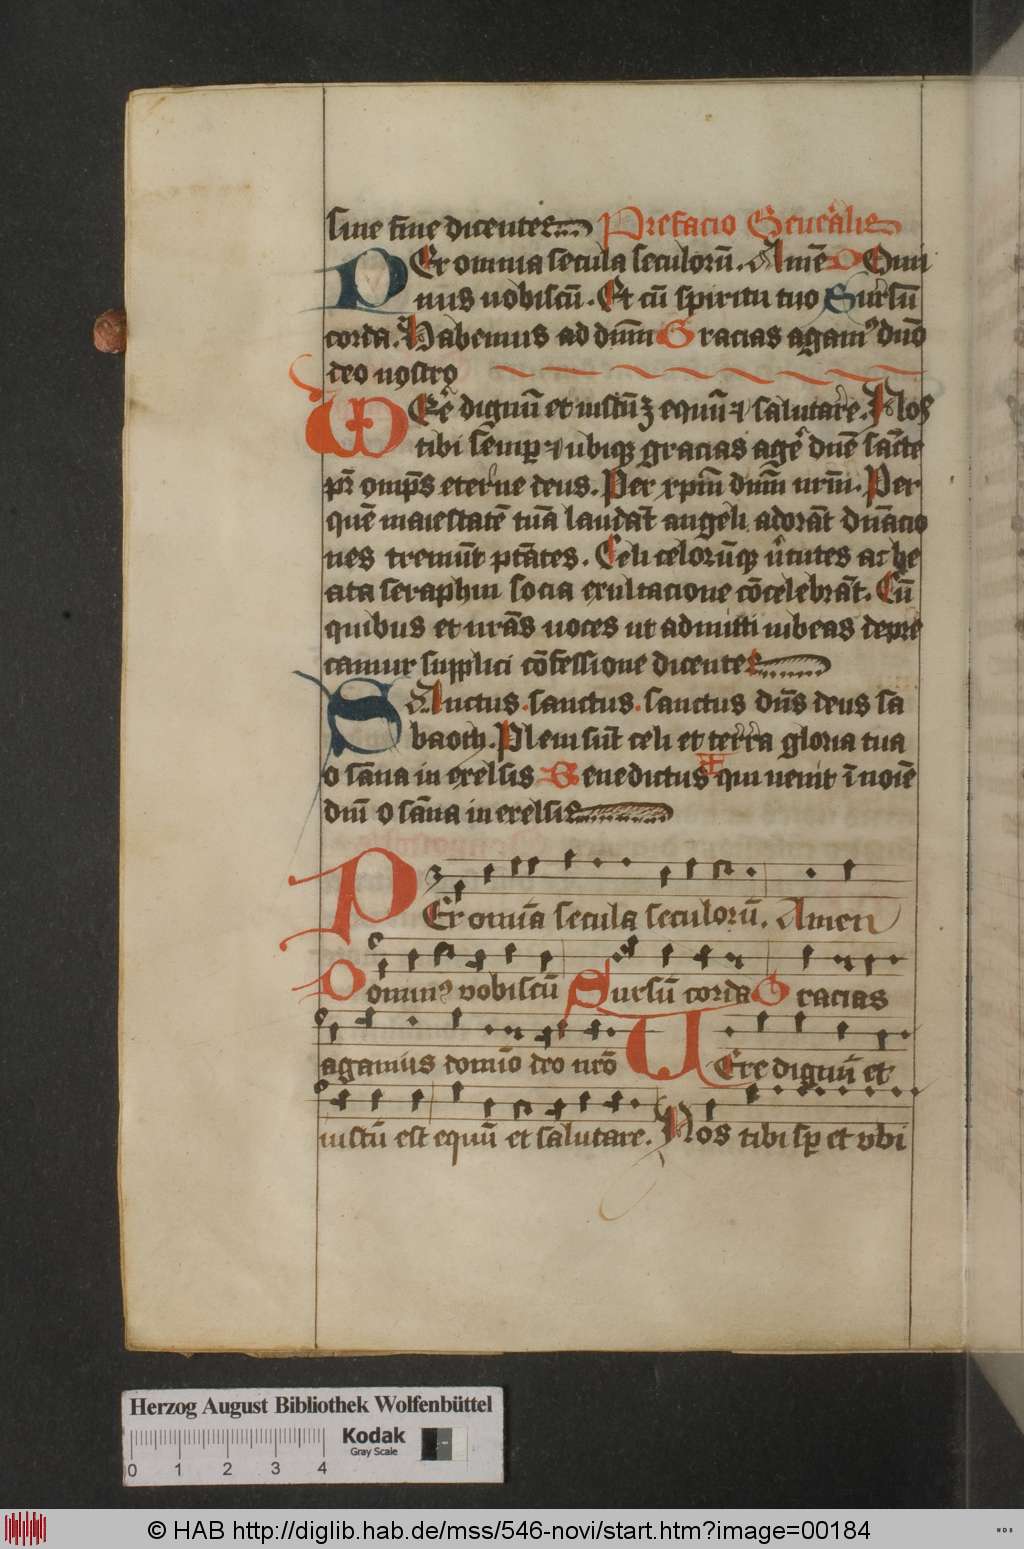 sine fine dicentes Prefacio Gen̄alis
PEr omnia secula seculorū. Amē DOmi
nus uobiscū. Et cū spiritu tuo Sursū
corda. Habemus ad dn̄m Gracias agamꝰ dn̄o
deo nostro
VEre dignū et iustū ꝫ equū ⁊ salutare. Nos
tibi sēmp ⁊ ubiqꝫ gracias agē dn̄e sācte
pr̄ omp̄s eterne deus. Per xpm̄ dnm̄ nrm̄. Per
quē maiestatē tuā laudāt angeli adorāt dn̄acio
nes tremūt ptātes. Celi celorūqꝫ v̄tutes ac be
ata seraphin socia exultacione cōcelebrāt. Cū
quibus et nrās uoces ut admitti iubeas depre
camur supplici cōfessione dicentes
SAnctus. sanctus. sanctus dn̄s deus sa
baoth. Pleni sūt celi et terra gloria tua
o sāna in exelsis Benedictus ✝ qui uenit ī noīe
dnī o sāna in exelsis
PEr omīa secula seculorū. Amen
Dominꝰ vobiscū Sursū corda Gracias
agamus domīo deo nrō VEre dignū et
iustū est equū et salutare. Nos tibi sp̄ et vbi
Herzog August Bibliothek Wolfenbüttel
Kodak
Gray Scale
0 1 2 3 4
© HAB http://diglib.hab.de/mss/546-novi/start.htm?image=00184